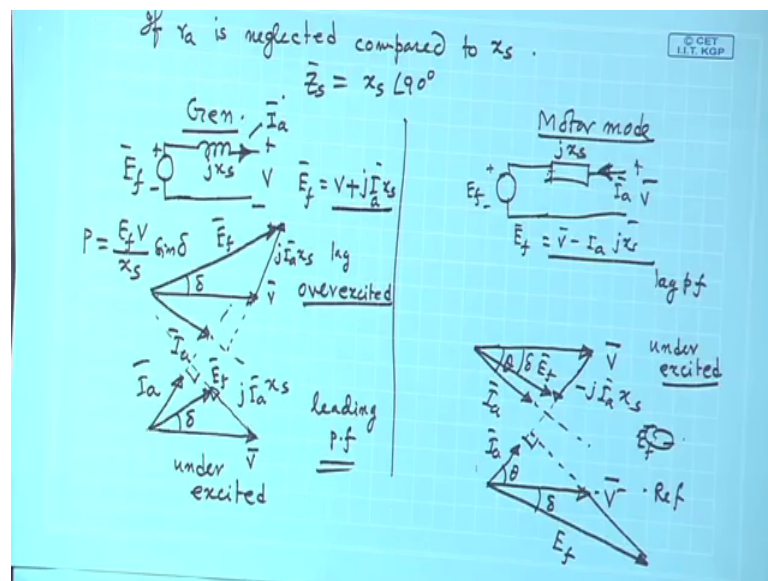 If ra is neglected compared to xs.
© CET
I.I.T. KGP
Z̄s = xs ∠90°
Gen.
Īa
+ +
Ēf jxs V
- -
Ēf = V + jĪaxs
P = EfV/xs Sinδ
Ēf
jĪaxs lag
δ V̄
overexcited
Īa
Īa Ēf jĪaxs
δ
V̄
leading
p.f
under
excited
Motor mode
jxs
+ +
Ef Īa V̄
- -
Ēf = V̄ - Īa jxs
lag pf
V̄ under
excited
θ δ Ēf
-jĪaxs
Īa
Ef
Īa
θ
V̄ Ref
δ
Ef